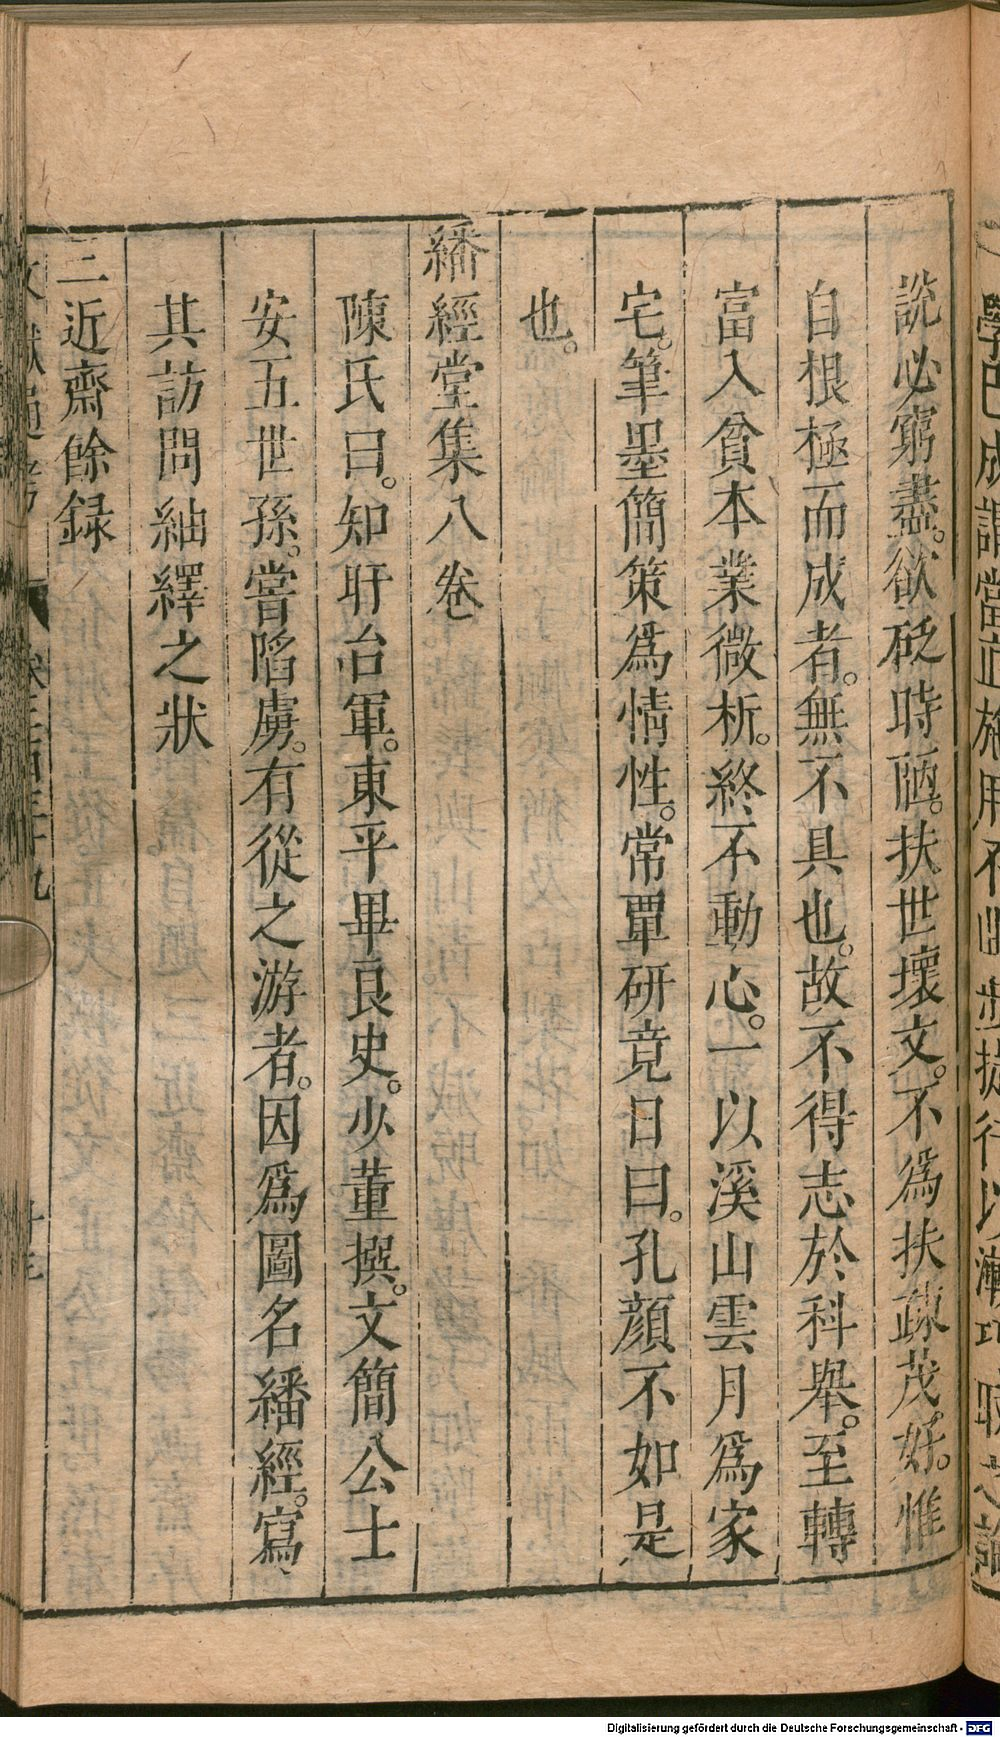 說必窮盡。欲砭時陋。扶世壞文。不爲扶疎茂好。惟
自根極而成者。無不具也。故不得志於科舉。至轉
富入貧本業微析。終不動心。一以溪山雲月爲家
宅。筆墨簡策爲情性。常覃研竟日曰。孔顏不如是
也。
繙經堂集八卷
陳氏曰。知盱台軍。東平畢良史。少董撰。文簡公士
安五世孫。嘗陷虜。有從之游者。因爲圖名繙經。寫
其訪問紬繹之狀
三近齋餘録
Digitalisierung gefördert durch die Deutsche Forschungsgemeinschaft - DFG